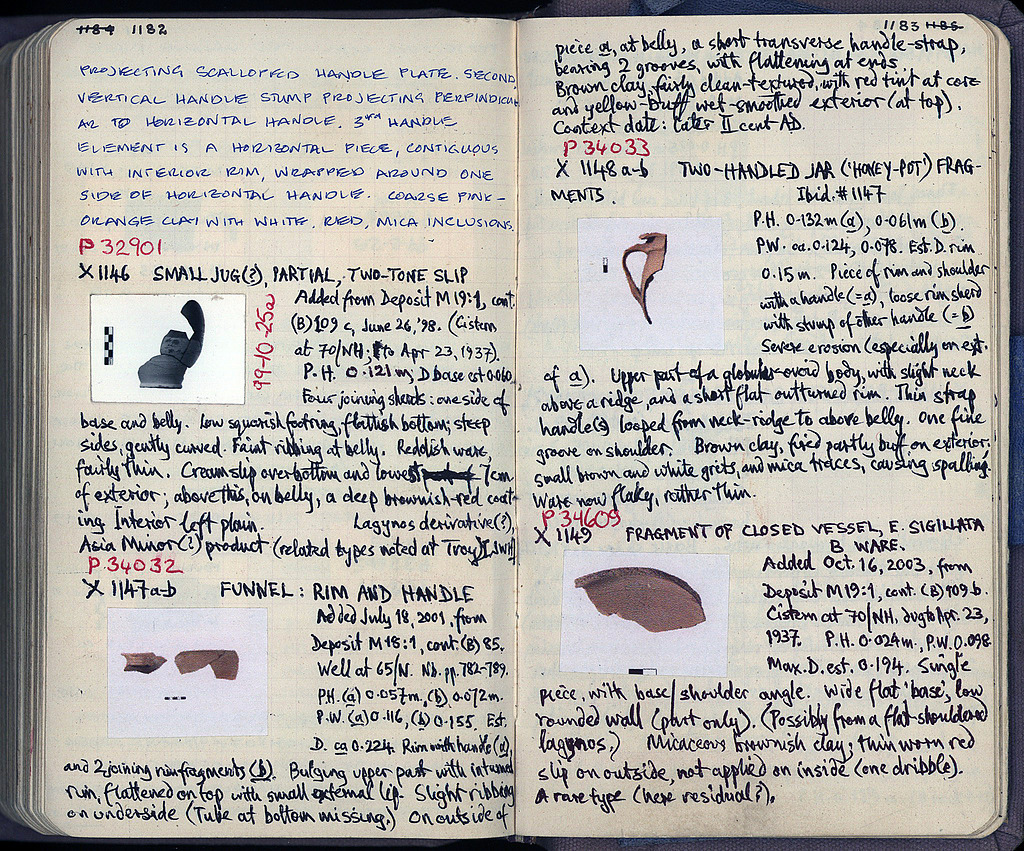 1184 1182
PROJECTING SCALLOPED HANDLE PLATE. SECOND
VERTICAL HANDLE STUMP PROJECTING PERPINDICU
AR TO HORIZONTAL HANDLE. 3rd HANDLE
ELEMENT IS A HORIZONTAL PIECE, CONTIGUOUS
WITH INTERIOR RIM, WRAPPED AROUND ONE
SIDE OF HORIZONTAL HANDLE. COARSE PINK-
ORANGE CLAY WITH WHITE, RED, MICA INCLUSIONS.
P 32901
X 1146 SMALL JUG(?), PARTIAL, TWO-TONE SLIP
99-10-25a
Added from Deposit M 19:1, cont.
(B) 109 c, June 26, '98. (Cistern
at 70/NH; to Apr 23, 1937).
P.H. 0.121 m; D base est 0.060
Four joining sherds: one side of
base and belly. Low squarish footring, flattish bottom; steep
sides, gently curved. Faint ribbing at belly. Reddish ware,
fairly thin. Cream slip over bottom and lowest 7cm
of exterior; above this, on belly, a deep brownish-red coat-
ing. Interior left plain. Lagynos derivative (?),
Asia Minor(?) product (related types noted at Troy) [JWH]
P 34032
X 1147 a-b FUNNEL: RIM AND HANDLE
Added July 18, 2001, from
Deposit M 18:1, cont. (B) 85.
Well at 65/N. Nb. pp. 782-789.
P.H. (a) 0.057m, (b) 0.072m.
P.W. (a) 0.116, (b) 0.155. Est.
D. ca 0.224. Rim with handle (a),
and 2 joining rim fragments (b). Bulging upper part with inturned
rim, flattened on top with small external lip. Slight ribbing
on underside (Tube at bottom missing.) On outside of
1183 1185
piece a, at belly, a short transverse handle-strap,
bearing 2 grooves, with flattening at ends.
Brown clay, fairly clean-textured, with red tint at core
and yellow-buff, wet-smoothed exterior (at top).
Context date: later II cent AD.
P 34033
X 1148 a-b TWO-HANDLED JAR ('HONEY-POT') FRAG-
MENTS. Ibid. # 1147
P.H. 0.132m (a), 0.061m (b).
P.W. ca. 0.124, 0.078. Est. D. rim
0.15 m. Piece of rim and shoulder
with a handle (=a), loose rim sherd
with stump of other handle (=b)
Severe erosion (especially on ext.
of a). Upper part of a globular-ovoid body, with slight neck
above a ridge, and a short flat outturned rim. Thin strap
handle(s) looped from neck-ridge to above belly. One fine
groove on shoulder. Brown clay, fired partly buff on exterior;
small brown and white grits, and mica traces, causing spalling.
Ware now flaky, rather thin.
P 34609
X 1149 FRAGMENT OF CLOSED VESSEL, E. SIGILLATA
B WARE.
Added Oct. 16, 2003, from
Deposit M 19:1, cont. (B) 109 b.
Cistern at 70/NH, dug to Apr. 23,
1937. P.H. 0.024m., P.W. 0.098.
Max. D. est. 0.194. Single
piece, with base/shoulder angle. Wide flat 'base', low
rounded wall (part only). (Possibly from a flat-shouldered
lagynos.) Micaceous brownish clay; thin worn red
slip on outside, not applied on inside (one dribble).
A rare type (here residual?).